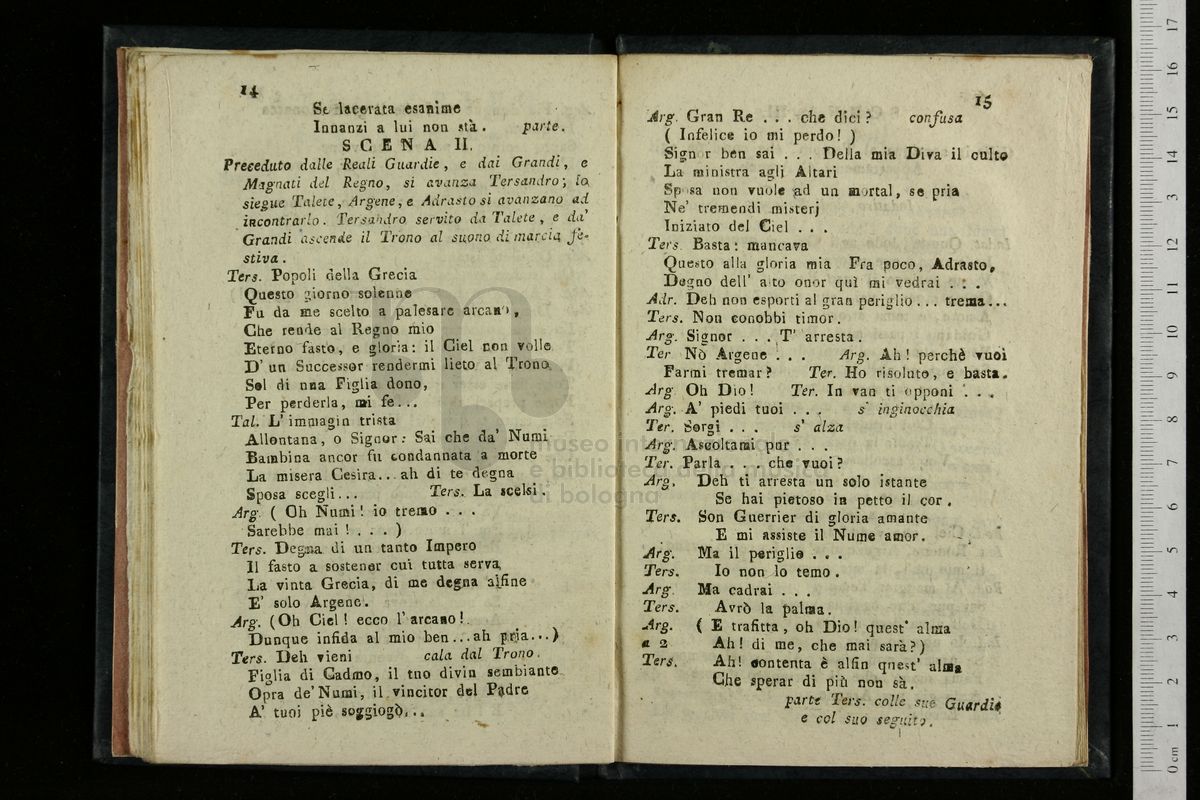 14
Se lacerata esanime
Innanzi a lui non stà. parte.
SCENA II.
Preceduto dalle Reali Guardie, e dai Grandi, e
Magnati del Regno, si avanza Tersandro; lo
siegue Talete, Argene, e Adrasto si avanzano ad
incontrarlo. Tersandro servito da Talete, e da'
Grandi ascende il Trono al suono di marcia fe-
stiva.
Ters. Popoli della Grecia
Questo giorno solenne
Fu da me scelto a palesare arcano,
Che rende al Regno mio
Eterno fasto, e gloria: il Ciel non volle
D' un Successor rendermi lieto al Trono
Sol di una Figlia dono,
Per perderla, mi fe...
Tal. L' immagin trista
Allontana, o Signor: Sai che da' Numi
Bambina ancor fu condannata a morte
La misera Cesira... ah di te degna
Sposa scegli... Ters. La scelsi.
Arg. ( Oh Numi! io tremo . . .
Sarebbe mai ! . . . )
Ters. Degna di un tanto Impero
Il fasto a sostener cui tutta serva
La vinta Grecia, di me degna alfine
E' solo Argene.
Arg. (Oh Ciel! ecco l'arcano!
Dunque infida al mio ben...ah pria...)
Ters. Deh vieni cala dal Trono.
Figlia di Cadmo, il tuo divin sembiante
Opra de' Numi, il vincitor del Padre
A' tuoi piè soggiogò...
15
Arg. Gran Re . . . che dici? confusa
( Infelice io mi perdo! )
Signor ben sai . . . Della mia Diva il culto
La ministra agli Altari
Sposa non vuole ad un mortal, se pria
Ne' tremendi misterj
Iniziato del Ciel . . .
Ters. Basta: mancava
Questo alla gloria mia Fra poco, Adrasto,
Degno dell' alto onor quì mi vedrai . . .
Adr. Deh non esporti al gran periglio... trema...
Ters. Non conobbi timor.
Arg. Signor . . . T' arresta.
Ter. Nò Argene . . . Arg. Ah! perchè vuoi
Farmi tremar? Ter. Ho risoluto, e basta.
Arg Oh Dio! Ter. In van ti opponi . . .
Arg. A' piedi tuoi . . . s' inginocchia
Ter. Sorgi . . . s' alza
Arg. Ascoltami pur . . .
Ter. Parla . . . che vuoi?
Arg. Deh ti arresta un solo istante
Se hai pietoso in petto il cor.
Ters. Son Guerrier di gloria amante
E mi assiste il Nume amor.
Arg. Ma il periglio . . .
Ters. Io non lo temo.
Arg. Ma cadrai . . .
Ters. Avrò la palma.
Arg. ( E trafitta, oh Dio! quest' alma
a 2 Ah! di me, che mai sarà?)
Ters. Ah! contenta è alfin quest' alma
Che sperar di più non sà.
parte Ters. colle sue Guardie
e col suo seguito.